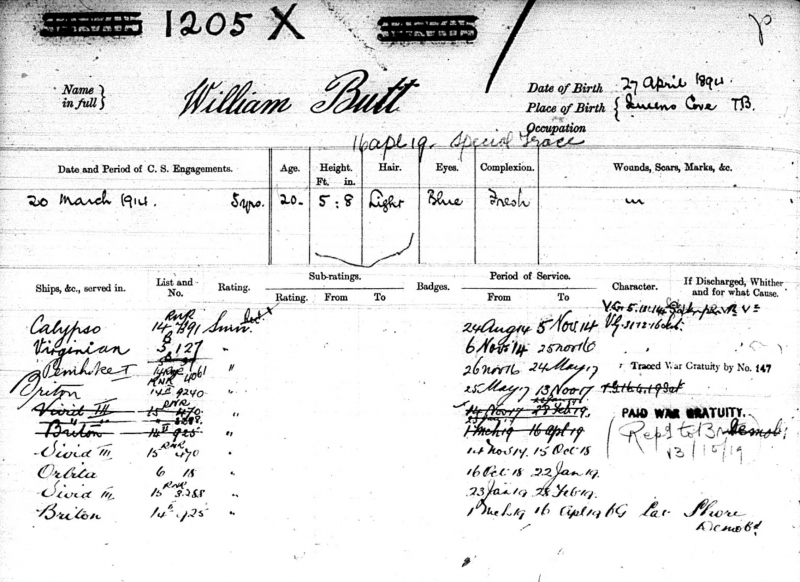 1205 X
Name in full } William Butt
Date of Birth 27 April 1894.
Place of Birth { Queens Cove TB.
Occupation
16 apl 19. Special Grace
Date and Period of C. S. Engagements. Age. Height. Ft. in. Hair. Eyes. Complexion. Wounds, Scars, Marks, &c.
20 March 1914. 5 yrs. 20 - 5 : 8 Light Blue Fresh
Ships, &c., served in. List and No. Rating. Sub-ratings. Rating. From To Badges. Period of Service. From To Character. If Discharged, Whether and for what Cause.
Calypso RNR 14 B 91 Smn. 24 Aug 14 5 Nov 14
Virginian 5 127 " 6 Nov 14 25 Nov 16
Pembroke I 4061 " 26 Nov 16 24 May 17 Traced War Gratuity by No. 147
Briton RNR 14 9240 " 25 May 17 13 Nov 17
Vivid III RNR 15 470 " 14 Nov 17 28 Feb 19.
"Briton" 14 925 " 1 Mch 19 16 apl 19
PAID WAR GRATUITY.
Vivid III RNR 15 470 " 14 Nov 17. 15 Oct 18
13/10/19
Orbita 6 18 " 16 Oct 18 22 Jan 19.
Vivid III RNR 15 3288 " 23 Jan 19 28 Feb 19.
Briton 14 925 " 1 Mch 19 16 Apl 19 VG Shore
Demobd